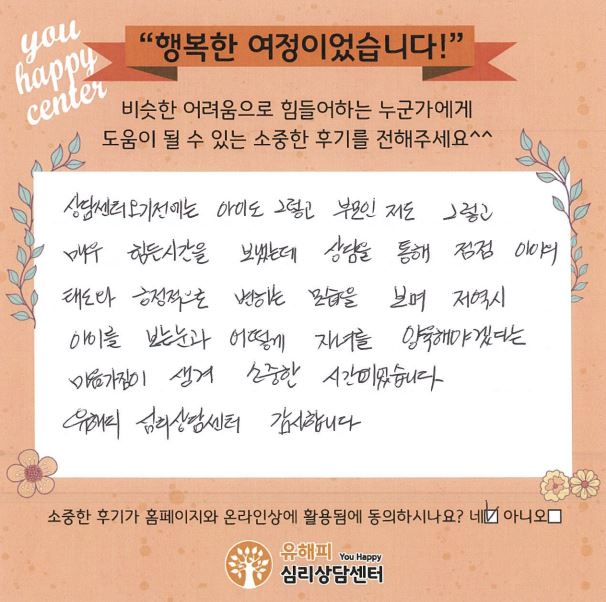 you
happy
center
“행복한 여정이었습니다!”
비슷한 어려움으로 힘들어하는 누군가에게
도움이 될 수 있는 소중한 후기를 전해주세요^^
상담센터오기전에는 아이도 그렇고 부모인 저도 그렇고
매우 힘든시간을 보냈는데 상담을 통해 점점 아이의
태도나 긍정적으로 변하는 모습을 보며 저역시
아이를 보는눈과 어떻게 자녀를 양육해야겠다는
마음가짐이 생겨 소중한 시간이였습니다.
유해피 심리상담센터 감사합니다
소중한 후기가 홈페이지와 온라인상에 활용됨에 동의하시나요? 네☑ 아니오□
유해피 You Happy
심리상담센터